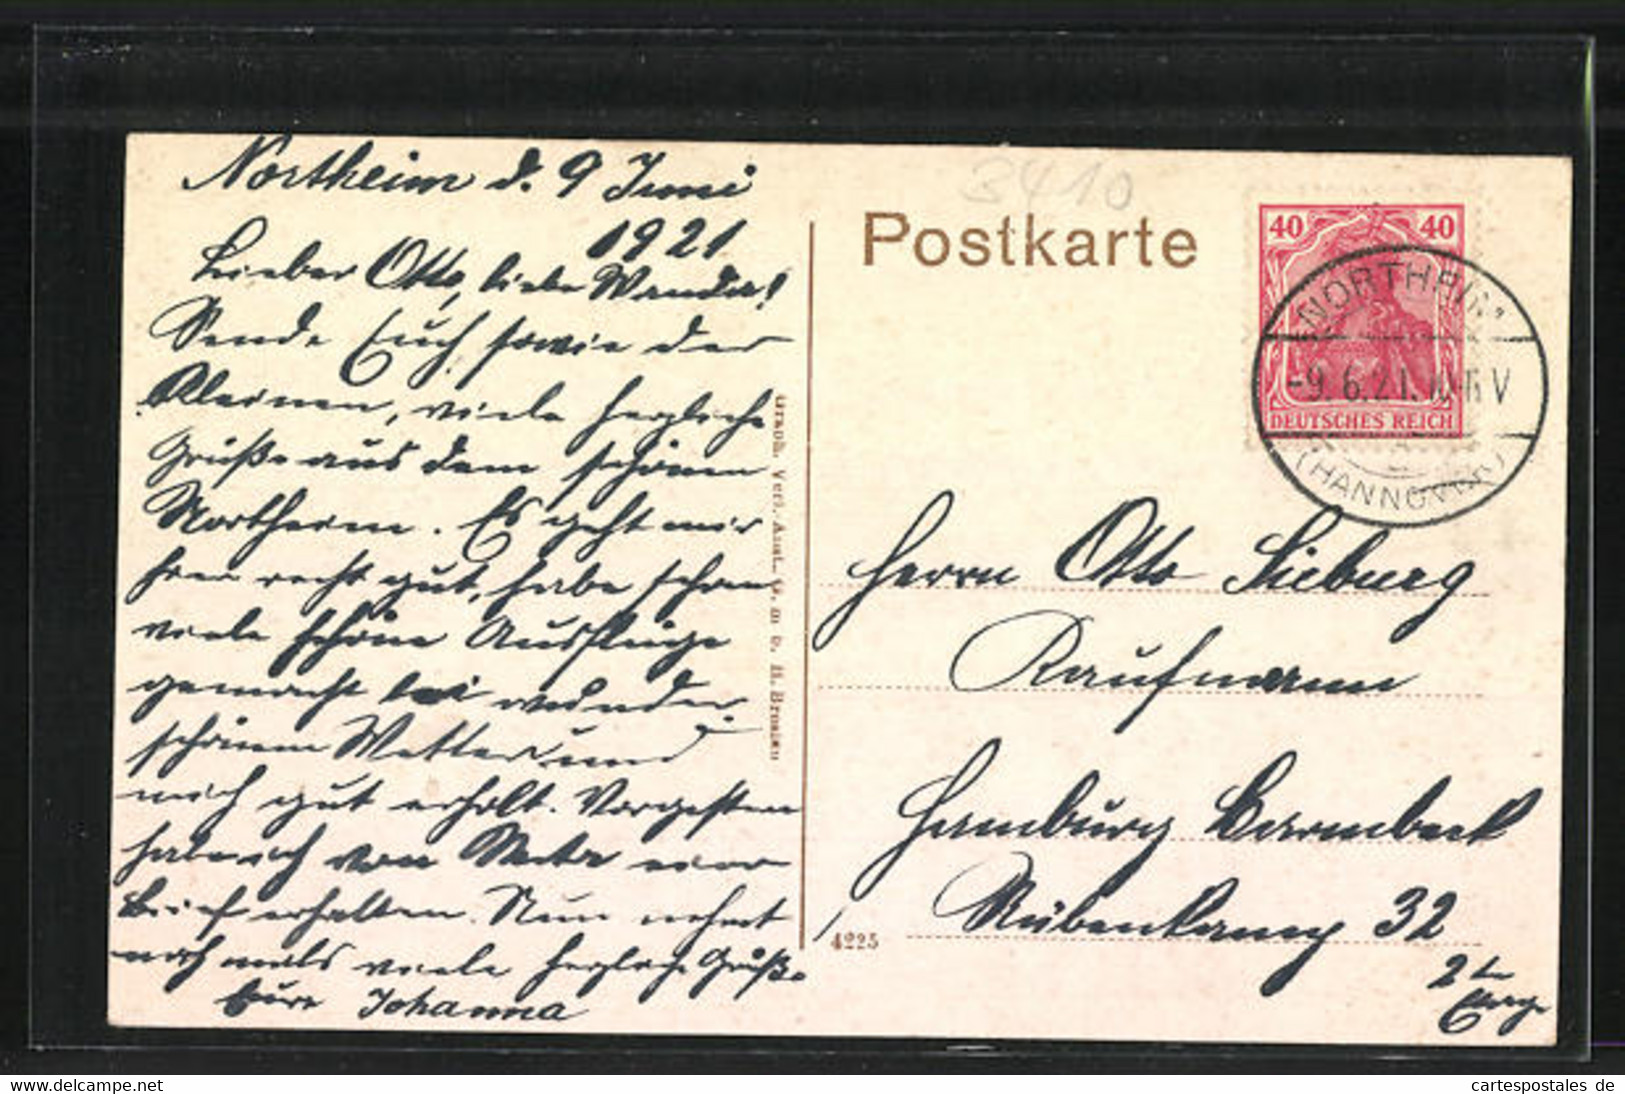 Northeim d. 9 Juni
1921
Lieber Otto, liebe Wanda!
Sende Euch sowie der
Kleinen, viele herzliche
Grüße aus dem schönen
Northeim. Es geht mir
hier recht gut, habe schon
viele schöne Ausflüge
gemacht bei wunder
schönem Wetter und
mich gut erholt. Vorgestern
habe ich von Meta einen
Brief erhalten. Nun nehmt
nochmals viele herzliche Grüße
Eure Johanna
3410
Postkarte
40 40
DEUTSCHES REICH
NORTHEIM
-9.6.21. V
(HANNOVER)
Herrn Otto Sieburg
Kaufmann
Hamburg Barmbeck
Rübenkamp 32
2te Etage
Graph. Verl.-Anst. G. m. b. H. Breslau
4225
www.delcampe.net
cartespostales de